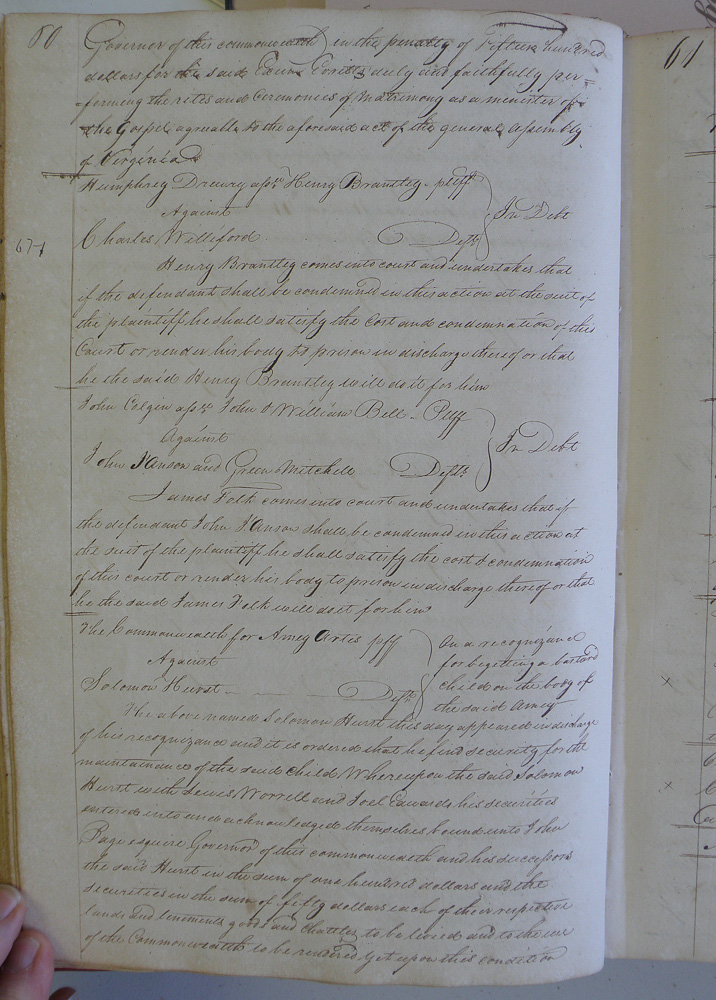 60
Governor of this commonwealth in the penalty of Fifteen hundred
dollars for the said duly and faithfully per=
=forming the rites and Ceremonies of Matrimony as a minister of
the Gospel agreeable to the aforesaid act of the general Assembly
of Virginia
Humphrey Drewry assee Henry Brantley plff
Against
In Debt
Charles Williford Deft
671
Henry Brantley comes into court and undertakes that
if the defendant shall be condemned in this action at the suit of
the plaintiff he shall satisfy the Cost and condemnation of this
Court or render his body to prison in discharge thereof or that
he the said Henry Brantley will do it for him
John Colgin assee John & William Bell Plff
Against
In Debt
John J'Anson and Green Mitchell Defts
James Folk comes into court and undertakes that if
the defendant John J'Anson shall be condemned in this action at
the suit of the plaintiff he shall satisfy the cost & condemnation
of this court or render his body to prison in discharge thereof or that
he the said James Folk will do it for him
The Commonwealth for Amey Artis plff
Against
Solomon Hurst Deft
On a recognizance
for begetting a bastard
child on the body of
the said Amey
The above named Solomon Hurst this day appeared in discharge
of his recognizance and it is ordered that he find security for the
maintainance of the said child Whereupon the said Solomon
Hurst with Lewis Worrell and Joel Edwards his securities
entered into and acknowledged themselves bound unto John
Page esquire Governor of this commonwealth and his successors
the said Hurst in the sum of one hundred dollars and the
securities in the sum of fifty dollars each of their respective
lands and tenements goods and Chattles to be levied and to the use
of the Commonwealth to be rendered yet upon this condition
61